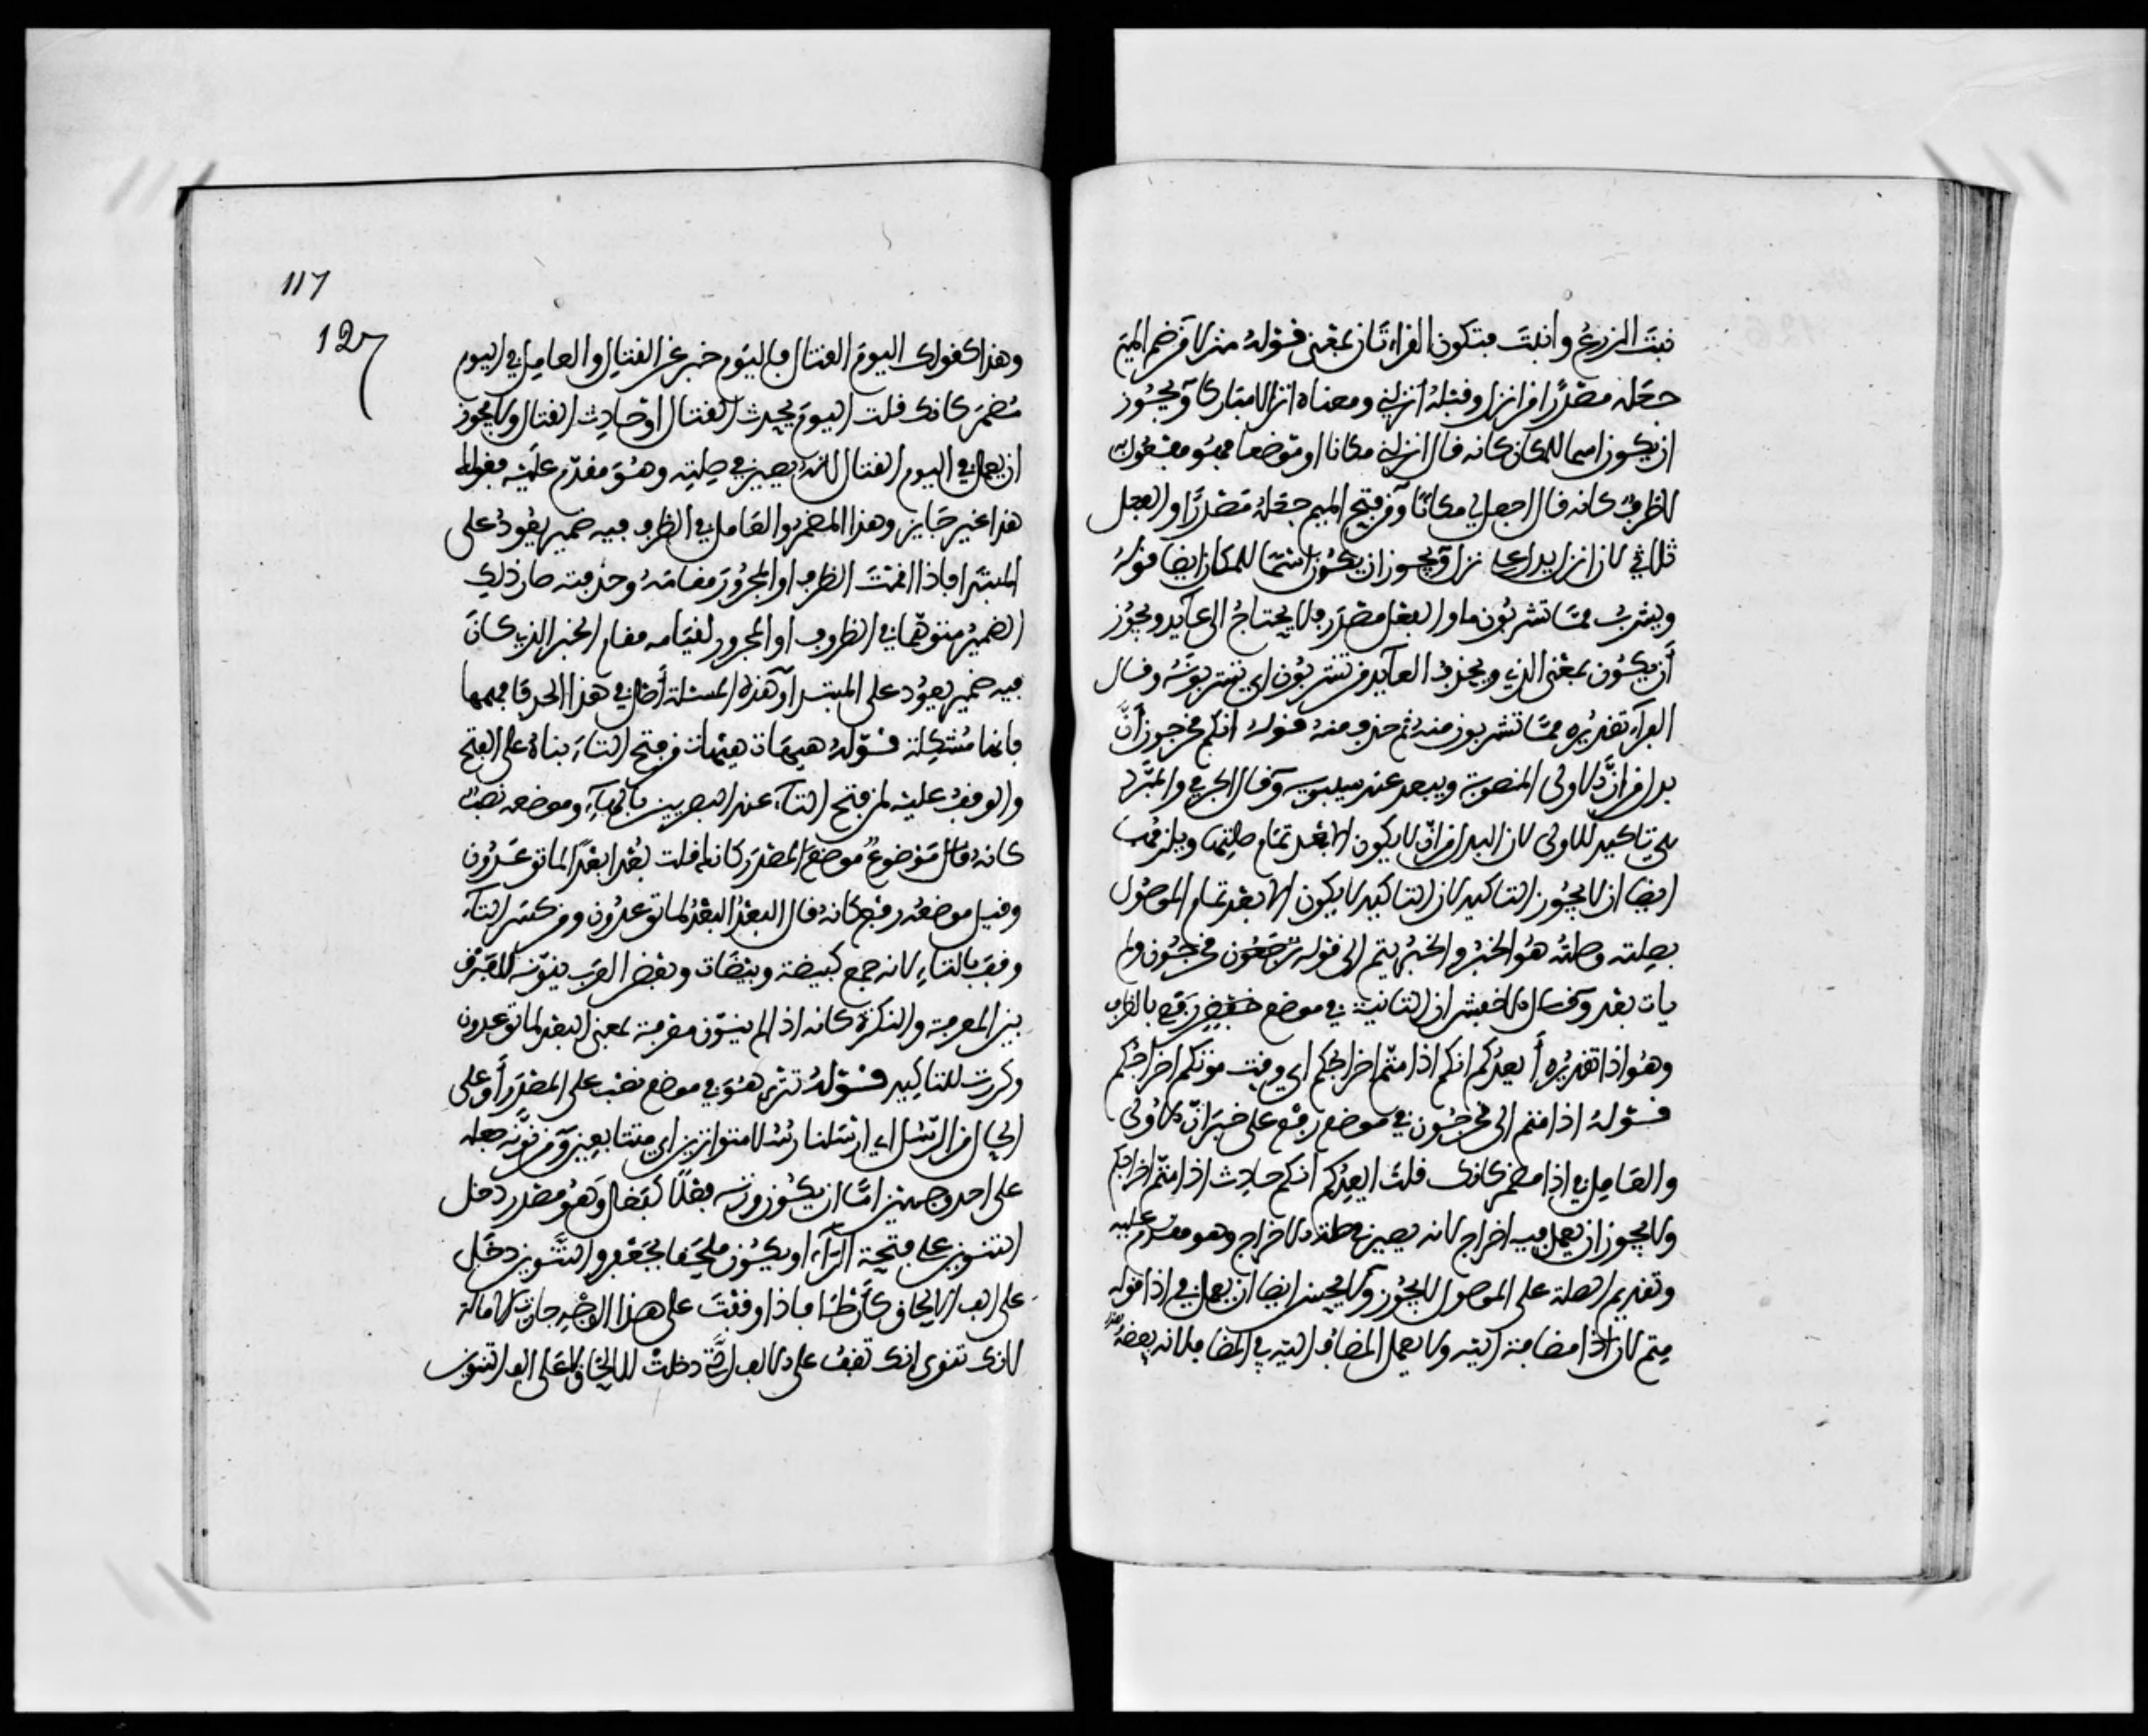 نبت الزرع وانبت فتكون القراءتان بمعنى قوله منزلا من ضم الميم
جعله مصدرا من انزل وقبله انزلني ومعناه انزالا مباركا ويجوز
ان يكون اسما للمكان كانه قال انزلني مكانا او موضعا فهو مفعول به
لا ظرف كانه قال اجعل لي مكانا ومن فتح الميم جعله مصدرا والفعل
ثلاثي لان انزل يدل على نزل ويجوز ان يكون اسما للمكان ايضا قوله
ويشرب مما تشربون ما والفعل مصدر فلا يحتاج الى عايد ويجوز
أن يكون بمعنى الذي ويحذف العايد من تشربون اي تشربونه وقال
الفراء تقديره مما تشربون منه ثم حذف منه قوله انكم مخرجون أنّ
بدل من انّ الاولى المنصوبة ويبعد عند سيبويه وقال الجرمي والمبرد
هي تاكيد للاولى لان البدل من انّ لا يكون الا بعد تمام صلتها ويلزمهما
ايضا ان لا يجوز التاكيد لان التاكيد لا يكون الا بعد تمام الموصول
بصلته وصلته هو الخبر والخبر يتم الى قوله مخرجون ولم
يات بعد وقال الاخفش ان الثانية في موضع رفع بالظرف
وهو اذا تقديره أيعدكم انكم اذا متم اخراجكم اي وقت موتكم اخراجكم
قوله اذا متم الى مخرجون في موضع رفع على خبر انّ الاولى
والعامل في اذا مضمر كانك قلت ايعدكم انكم حادث اذا متم اخراجكم
ولا يجوز ان يعمل فيه اخراج لانه يصير في صلة الاخراج وهو مقدم عليه
وتقديم الصلة على الموصول لا يجوز ولا يحسن ايضا ان يعمل في اذا قوله
متم لان اذا مضافة اليه ولا يعمل المضاف اليه في المضاف لانه بعضه
117
127
وهذا كقولك اليوم القتال فاليوم خبر عن القتال والعامل في اليوم
مضمر كانك قلت اليوم يحدث القتال او حادث القتال ولا يجوز
ان يعمل في اليوم القتال لانه يصير في صلته وهو مقدم عليه فقولك
هذا غير جايز وهذا المضمر والعامل في الظرف فيه ضمير يعود على
المبتدا فاذا اقمت الظرف او المجرور مقامه وحذفته صار ذلك
الضمير متوهما في الظرف او المجرور لقيامه مقام الخبر الذي كان
فيه ضمير يعود على المبتدا وهذه المسئلة أصل في هذا الحد فافهمها
فانها مشكلة قوله هيهات هيهات من فتح التاء بناه على الفتح
والوقف عليه لمن فتح التاء عند البصريين بالهاء وموضعه نصب
كانه قال موضوع موضع المصدر كانه قلت بعدا بعدا لما توعدون
وقيل موضعه رفع كانه قال البعد البعد لما توعدون ومن كسر التاء
وقف بالتاء لانه جمع كبيضة وبيضات وبعض العرب ينونه للفرق
بين المعرفة والنكرة كانه اذا لم ينون معرفة بمعنى البعد لما توعدون
وكررت للتاكيد قوله تترا هو في موضع نصب على المصدر أو على
الحال من الرسل اي ارسلنا رسلا متواترين اي متتابعين ومن نونه جعله
على احد وجهين اما ان يكون وزنه فعلا وهو مصدر دخل
التنوين على فتحة الراء او يكون ملحقا بجعفر والتنوين دخل
على الف الالحاق كأرطا فاذا وقفت على هذا الوجه جازت الامالة
لانك تنوي انك تقف على الالف التي دخلت للالحاق لا على الف التنوين